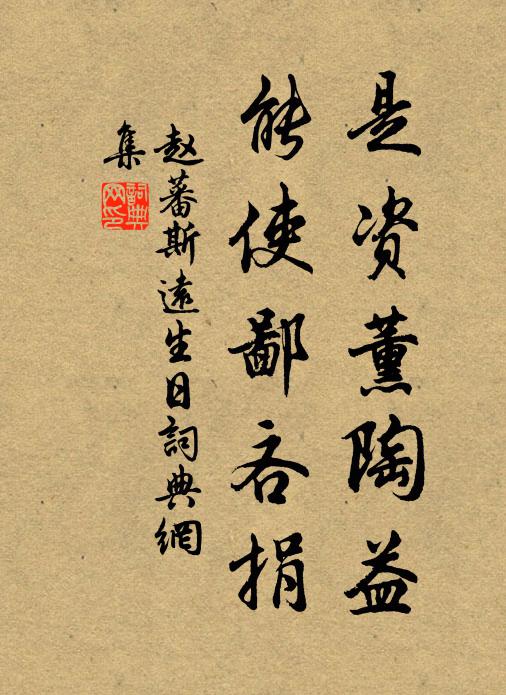 是资薰陶益
能使鄙吝捐
赵蕃斯遠生日詞典網
集
詞典
网印